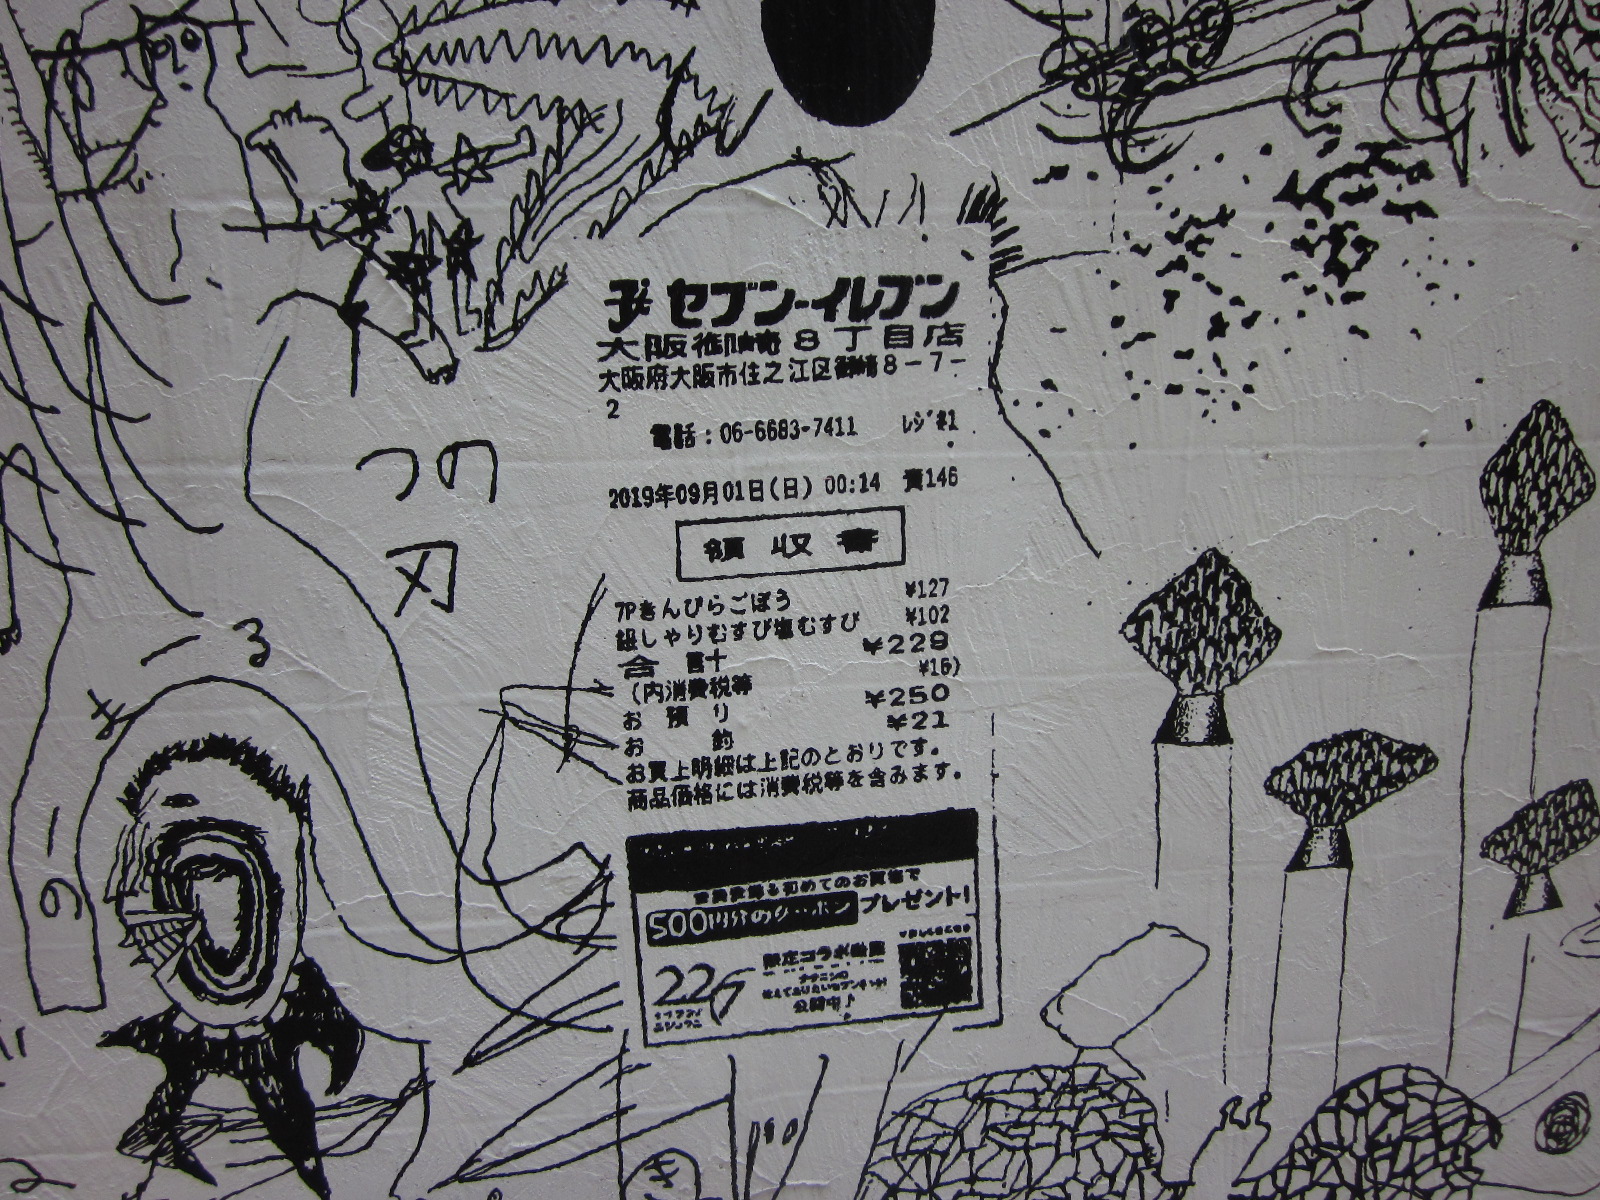 セブン-イレブン
大阪御崎8丁目店
大阪府大阪市住之江区御崎8-7-
2
電話:06-6683-7411 レジ#1
2019年09月01日(日) 00:14 責146
領収書
7Pきんぴらごぼう ¥127
銀しゃりむすび塩むすび ¥102
合計 ¥229
(内消費税等 ¥16)
お預り ¥250
お釣 ¥21
お買上明細は上記のとおりです。
商品価格には消費税等を含みます。
初めてのお買物で
500円分のクーポンプレゼント!
限定コラボ動画
公開中♪
つの
刃